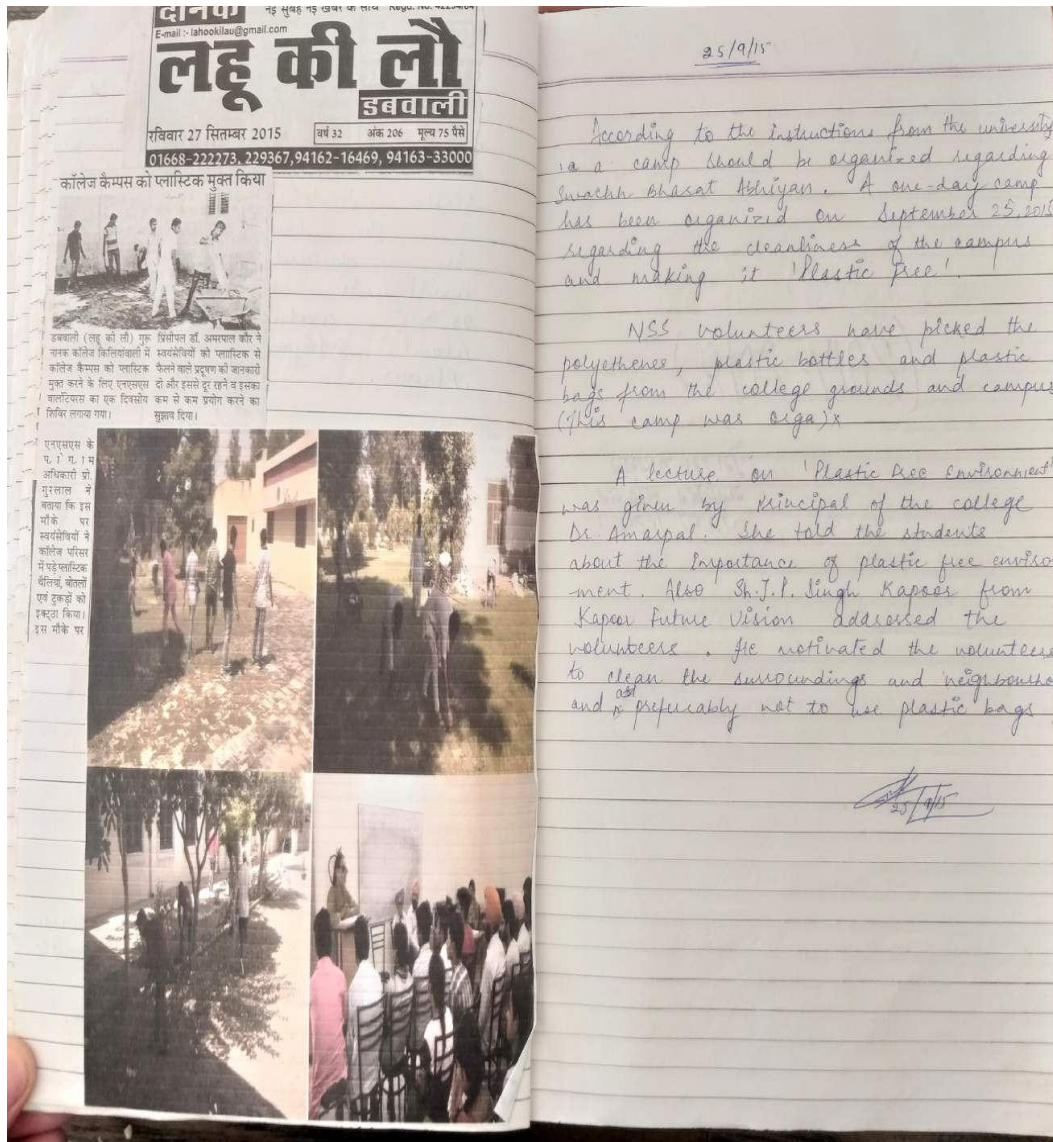 दैनिक
नई सुबह नई खबर के साथ Regd. No.
E-mail :- lahookilau@gmail.com
लहू की लौ
डबवाली
रविवार 27 सितम्बर 2015 वर्ष 32 अंक 206 मूल्य 75 पैसे
01668-222273, 229367,94162-16469, 94163-33000
कॉलेज कैम्पस को प्लास्टिक मुक्त किया
डबवाली (लहू की लौ) गुरू
नानक कॉलेज किलियांवाली में
कॉलेज कैम्पस को प्लास्टिक
मुक्त करने के लिए एनएसएस
वालंटियरस का एक दिवसीय
शिविर लगाया गया।
एनएसएस के
अधिकारी प्रो.
गुरलाल ने
बताया कि इस
मौके पर
स्वयंसेवियों ने
कॉलेज परिसर
में पड़े प्लास्टिक
थैलियां, बोतलों
एवं टुकड़ों को
इक्ट्ठा किया।
इस मौके पर
प्रिंसीपल डॉ. अमरपाल कौर ने
स्वयंसेवियों को प्लास्टिक से
फैलने वाले प्रदूषण की जानकारी
दी और इससे दूर रहने व इसका
कम से कम प्रयोग करने का
सुझाव दिया।
25/9/15
According to the instructions from the university
a camp should be organized regarding
Swachh Bharat Abhiyan. A one-day camp
has been organized on September 25, 2015
regarding the cleanliness of the campus
and making it 'Plastic Free'.
NSS volunteers have picked the
polyethenes, plastic bottles and plastic
bags from the college grounds and campus
(This camp was orga)x
A lecture on 'Plastic Free Environment'
was given by Principal of the college
Dr. Amarpal. She told the students
about the importance of plastic free enviro
ment. Also Sh. J.P. Singh Kapoor from
Kapoor Future Vision addressed the
volunteers. He motivated the volunteers
to clean the surroundings and neighbourho
and preferably not to use plastic bags
25/9/15